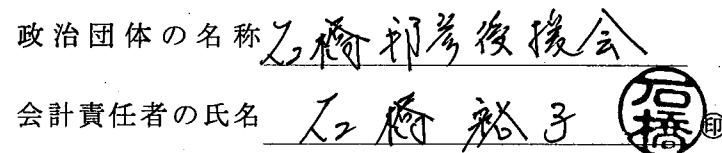 政治団体の名称 石橋邦彦後援会
会計責任者の氏名 石橋裕子 石橋 印